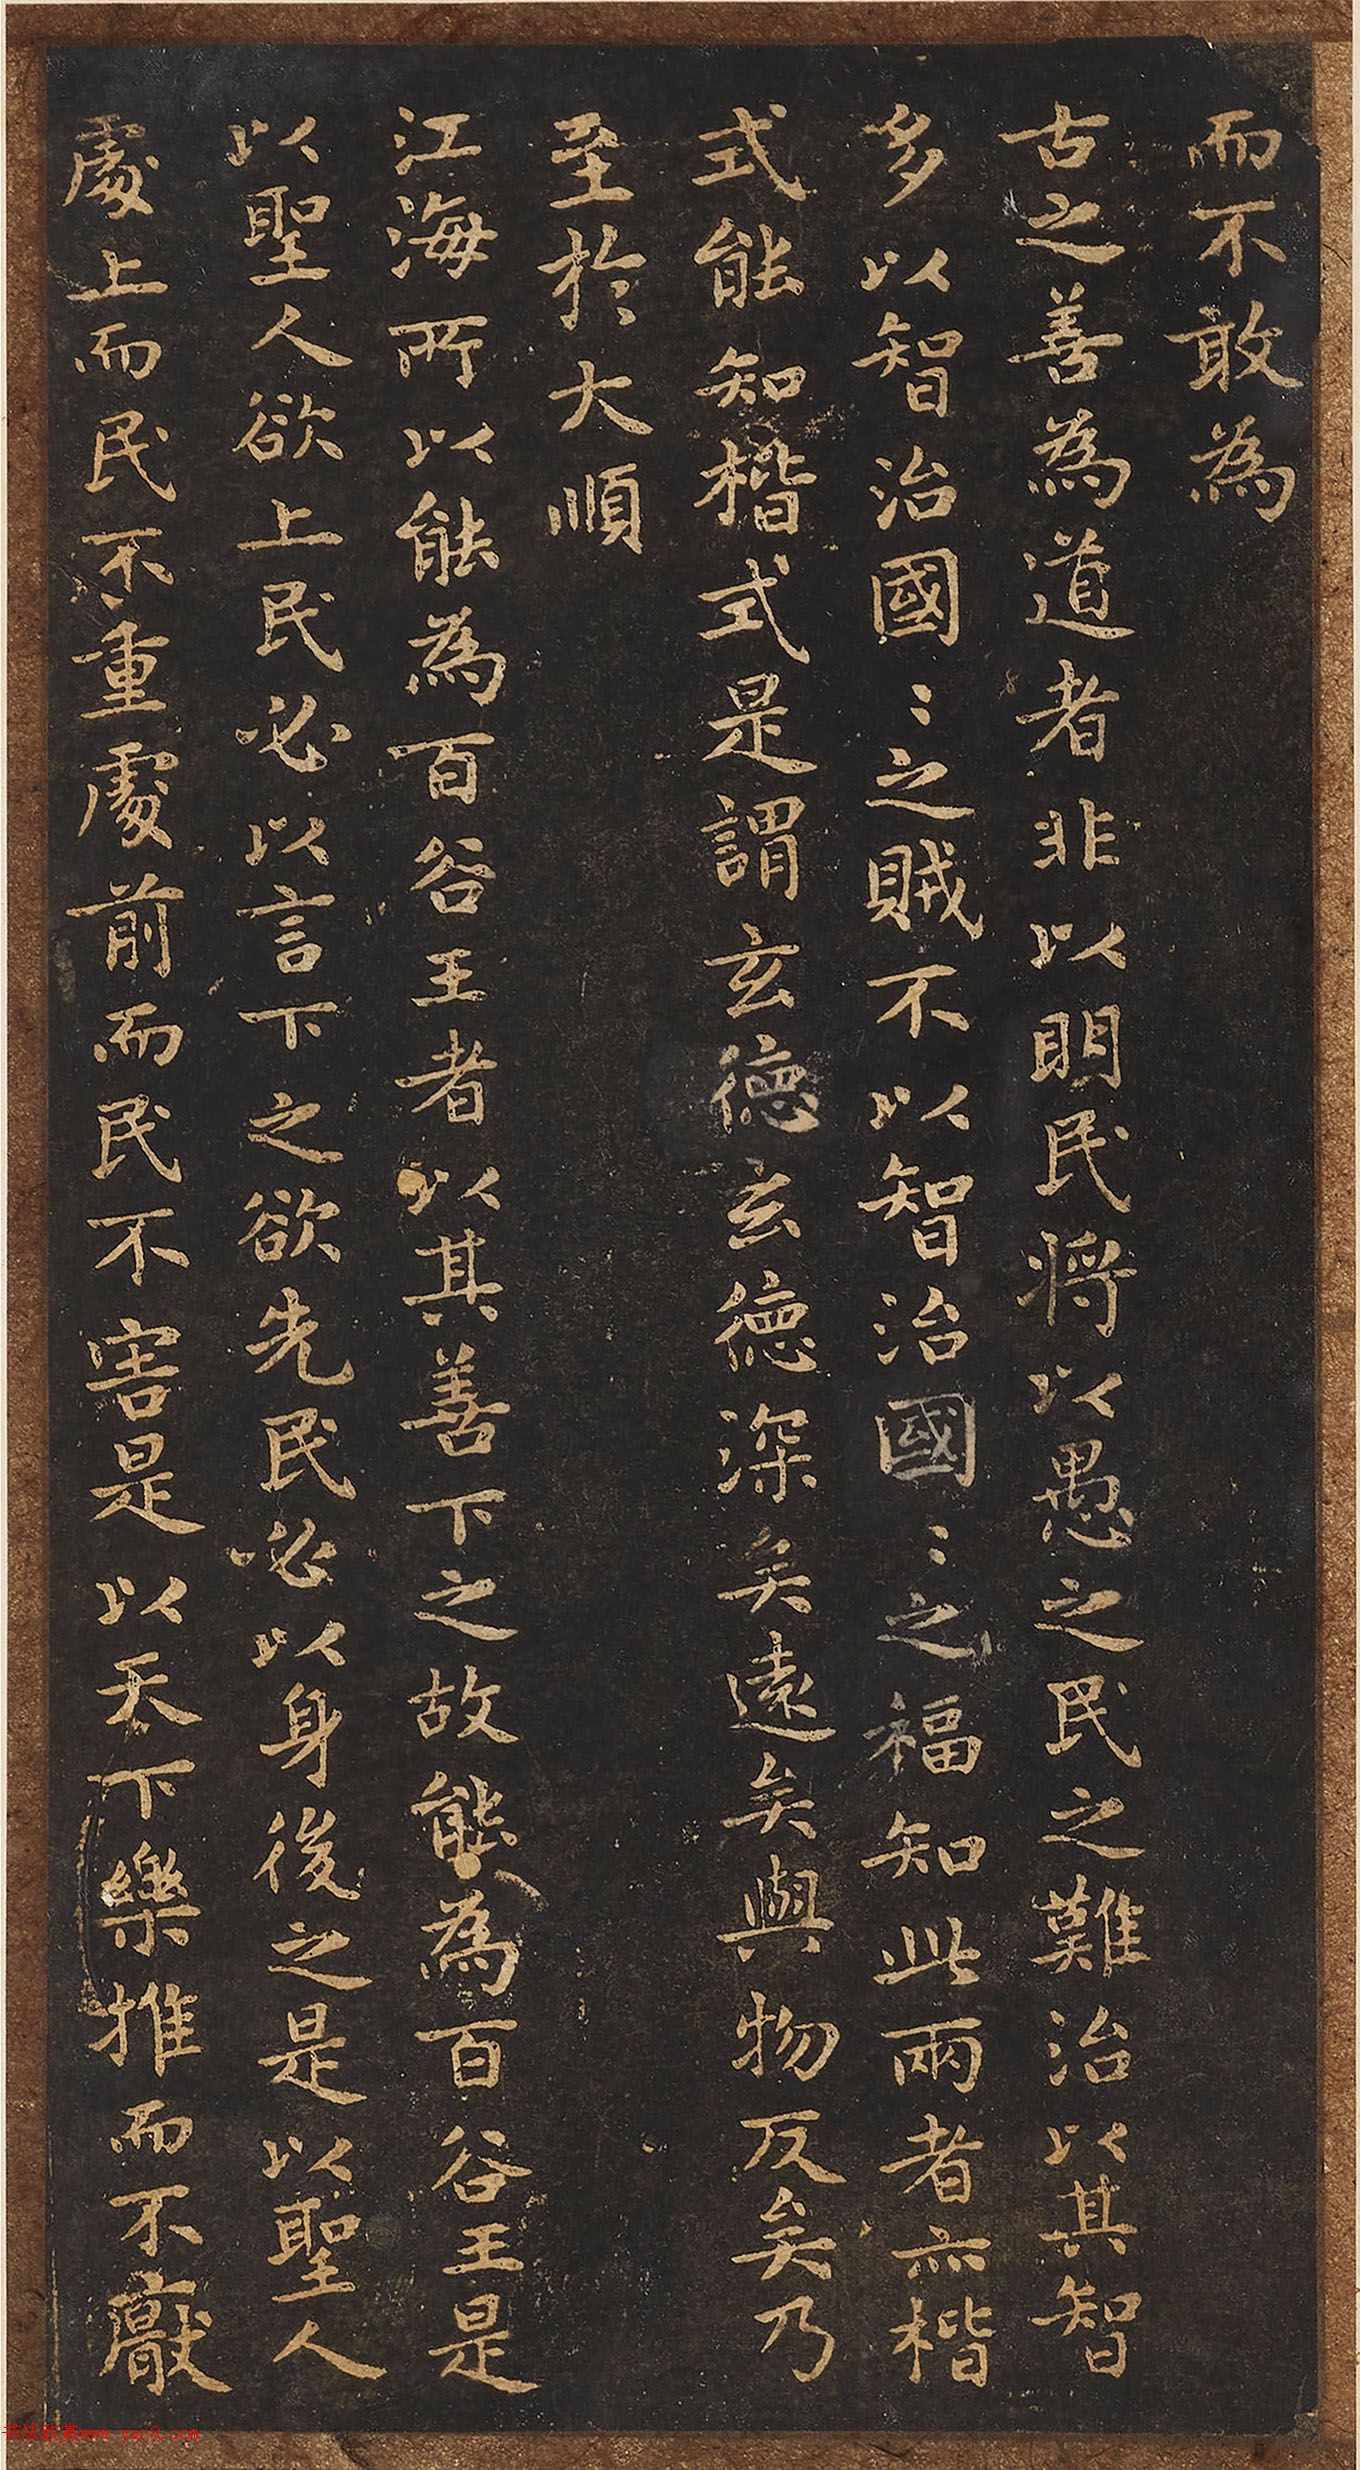 而不敢為
古之善為道者非以明民將以愚之民之難治以其智
多以智治國〻之賊不以智治國〻之福知此兩者亦楷
式能知楷式是謂玄德玄德深矣遠矣與物反矣乃
至於大順
江海所以能為百谷王者以其善下之故能為百谷王是
以聖人欲上民必以言下之欲先民必以身後之是以聖人
處上而民不重處前而民不害是以天下樂推而不厭
书法欣赏www.yac8.com